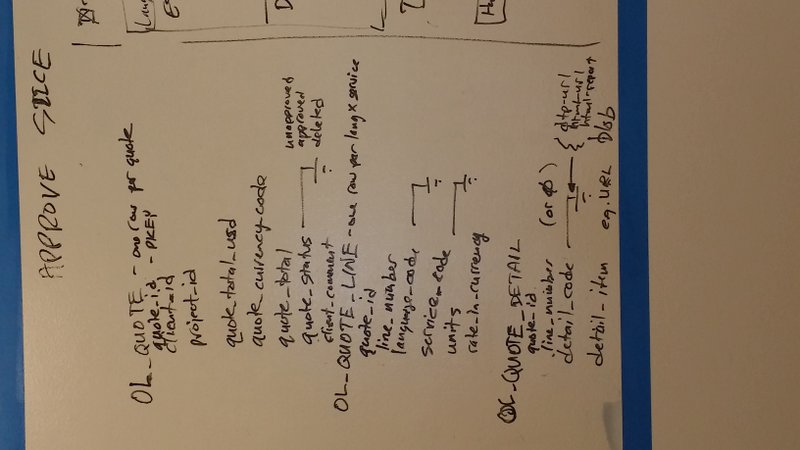 APPROVE
OL_QUOTE - one row per quote
quote_id - PKEY
client_id
project_id
quote_total_usd
quote_currency_code
quote_total
quote_status
unapproved
approved
deleted
client_comment
OL_QUOTE_LINE - one row per lang x service
quote_id
line_number
language_code
service_code
units
rate_in_currency
OL_QUOTE_DETAIL
quote_id
line_number (or Ø)
detail_code
html-url
html-report
detail_item e.g. URL